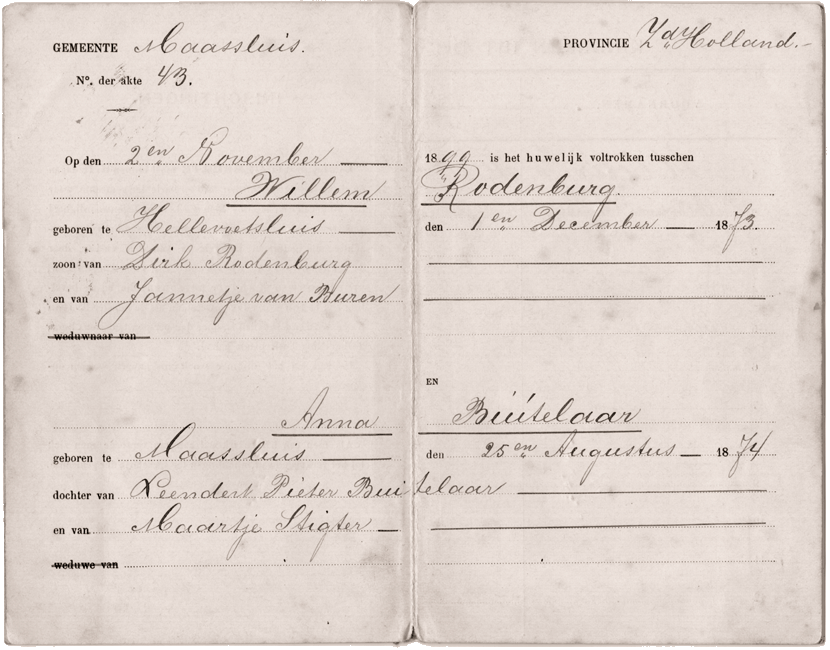 GEMEENTE Maassluis. PROVINCIE Zd Holland.
No. der akte 43.
Op den 2en November 1899 is het huwelijk voltrokken tusschen
Willem Rodenburg.
geboren te Hellevoetsluis den 1en December 1873.
zoon van Dirk Rodenburg
en van Jannetje van Buren
weduwnaar van
EN
Anna Buitelaar
geboren te Maassluis den 25en Augustus 1874
dochter van Leendert Pieter Buitelaar
en van Maartje Stigter
weduwe van